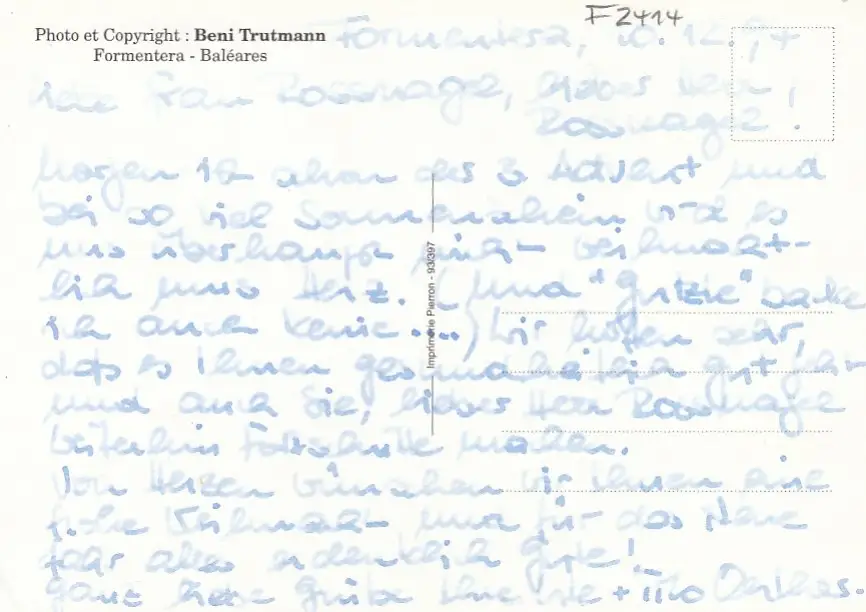 F2414
Photo et Copyright : Beni Trutmann
Formentera - Baléares
Formentera, 10. 12.
Frau Rossnagel, lieber Herr
Rossnagel!
Morgen ist schon der 3. Advent und
bei so viel Sonnenschein wird es
uns überhaupt nicht weihnacht-
lich ums Herz. (Und "Gutzle" backe
ich auch keine....) Wir hoffen sehr,
daß es Ihnen gesundheitlich gut geht
und auch Sie, lieber Herr Rossnagel
weiterhin Fortschritte machen.
Von Herzen wünschen wir Ihnen eine
frohe Weihnacht und für das Neue
Jahr alles erdenklich Gute!
Ganz liebe Grüße Ihre + Tilo
Imprimerie Pierron - 93/397